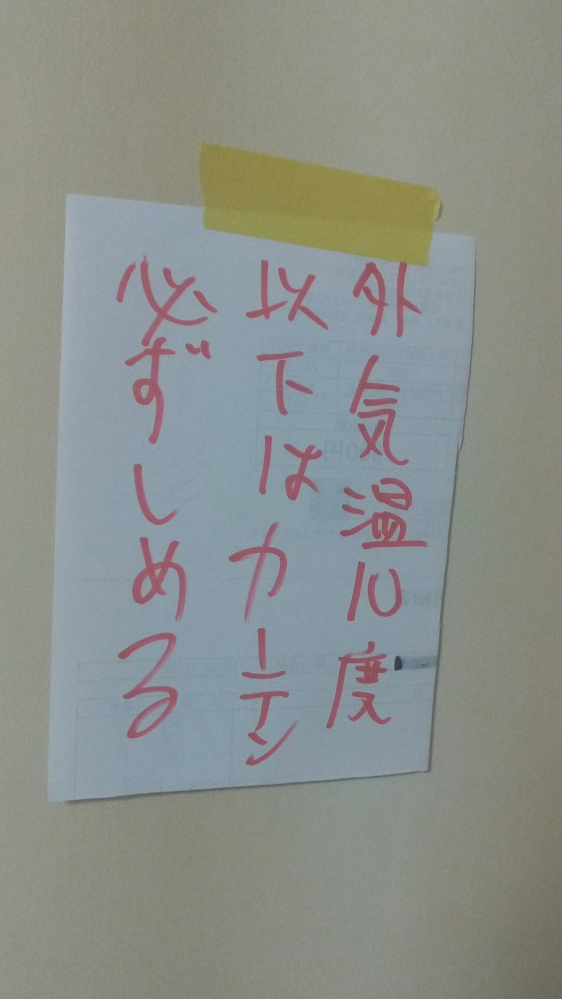 外気温10度
以下はカーテン
必ずしめる